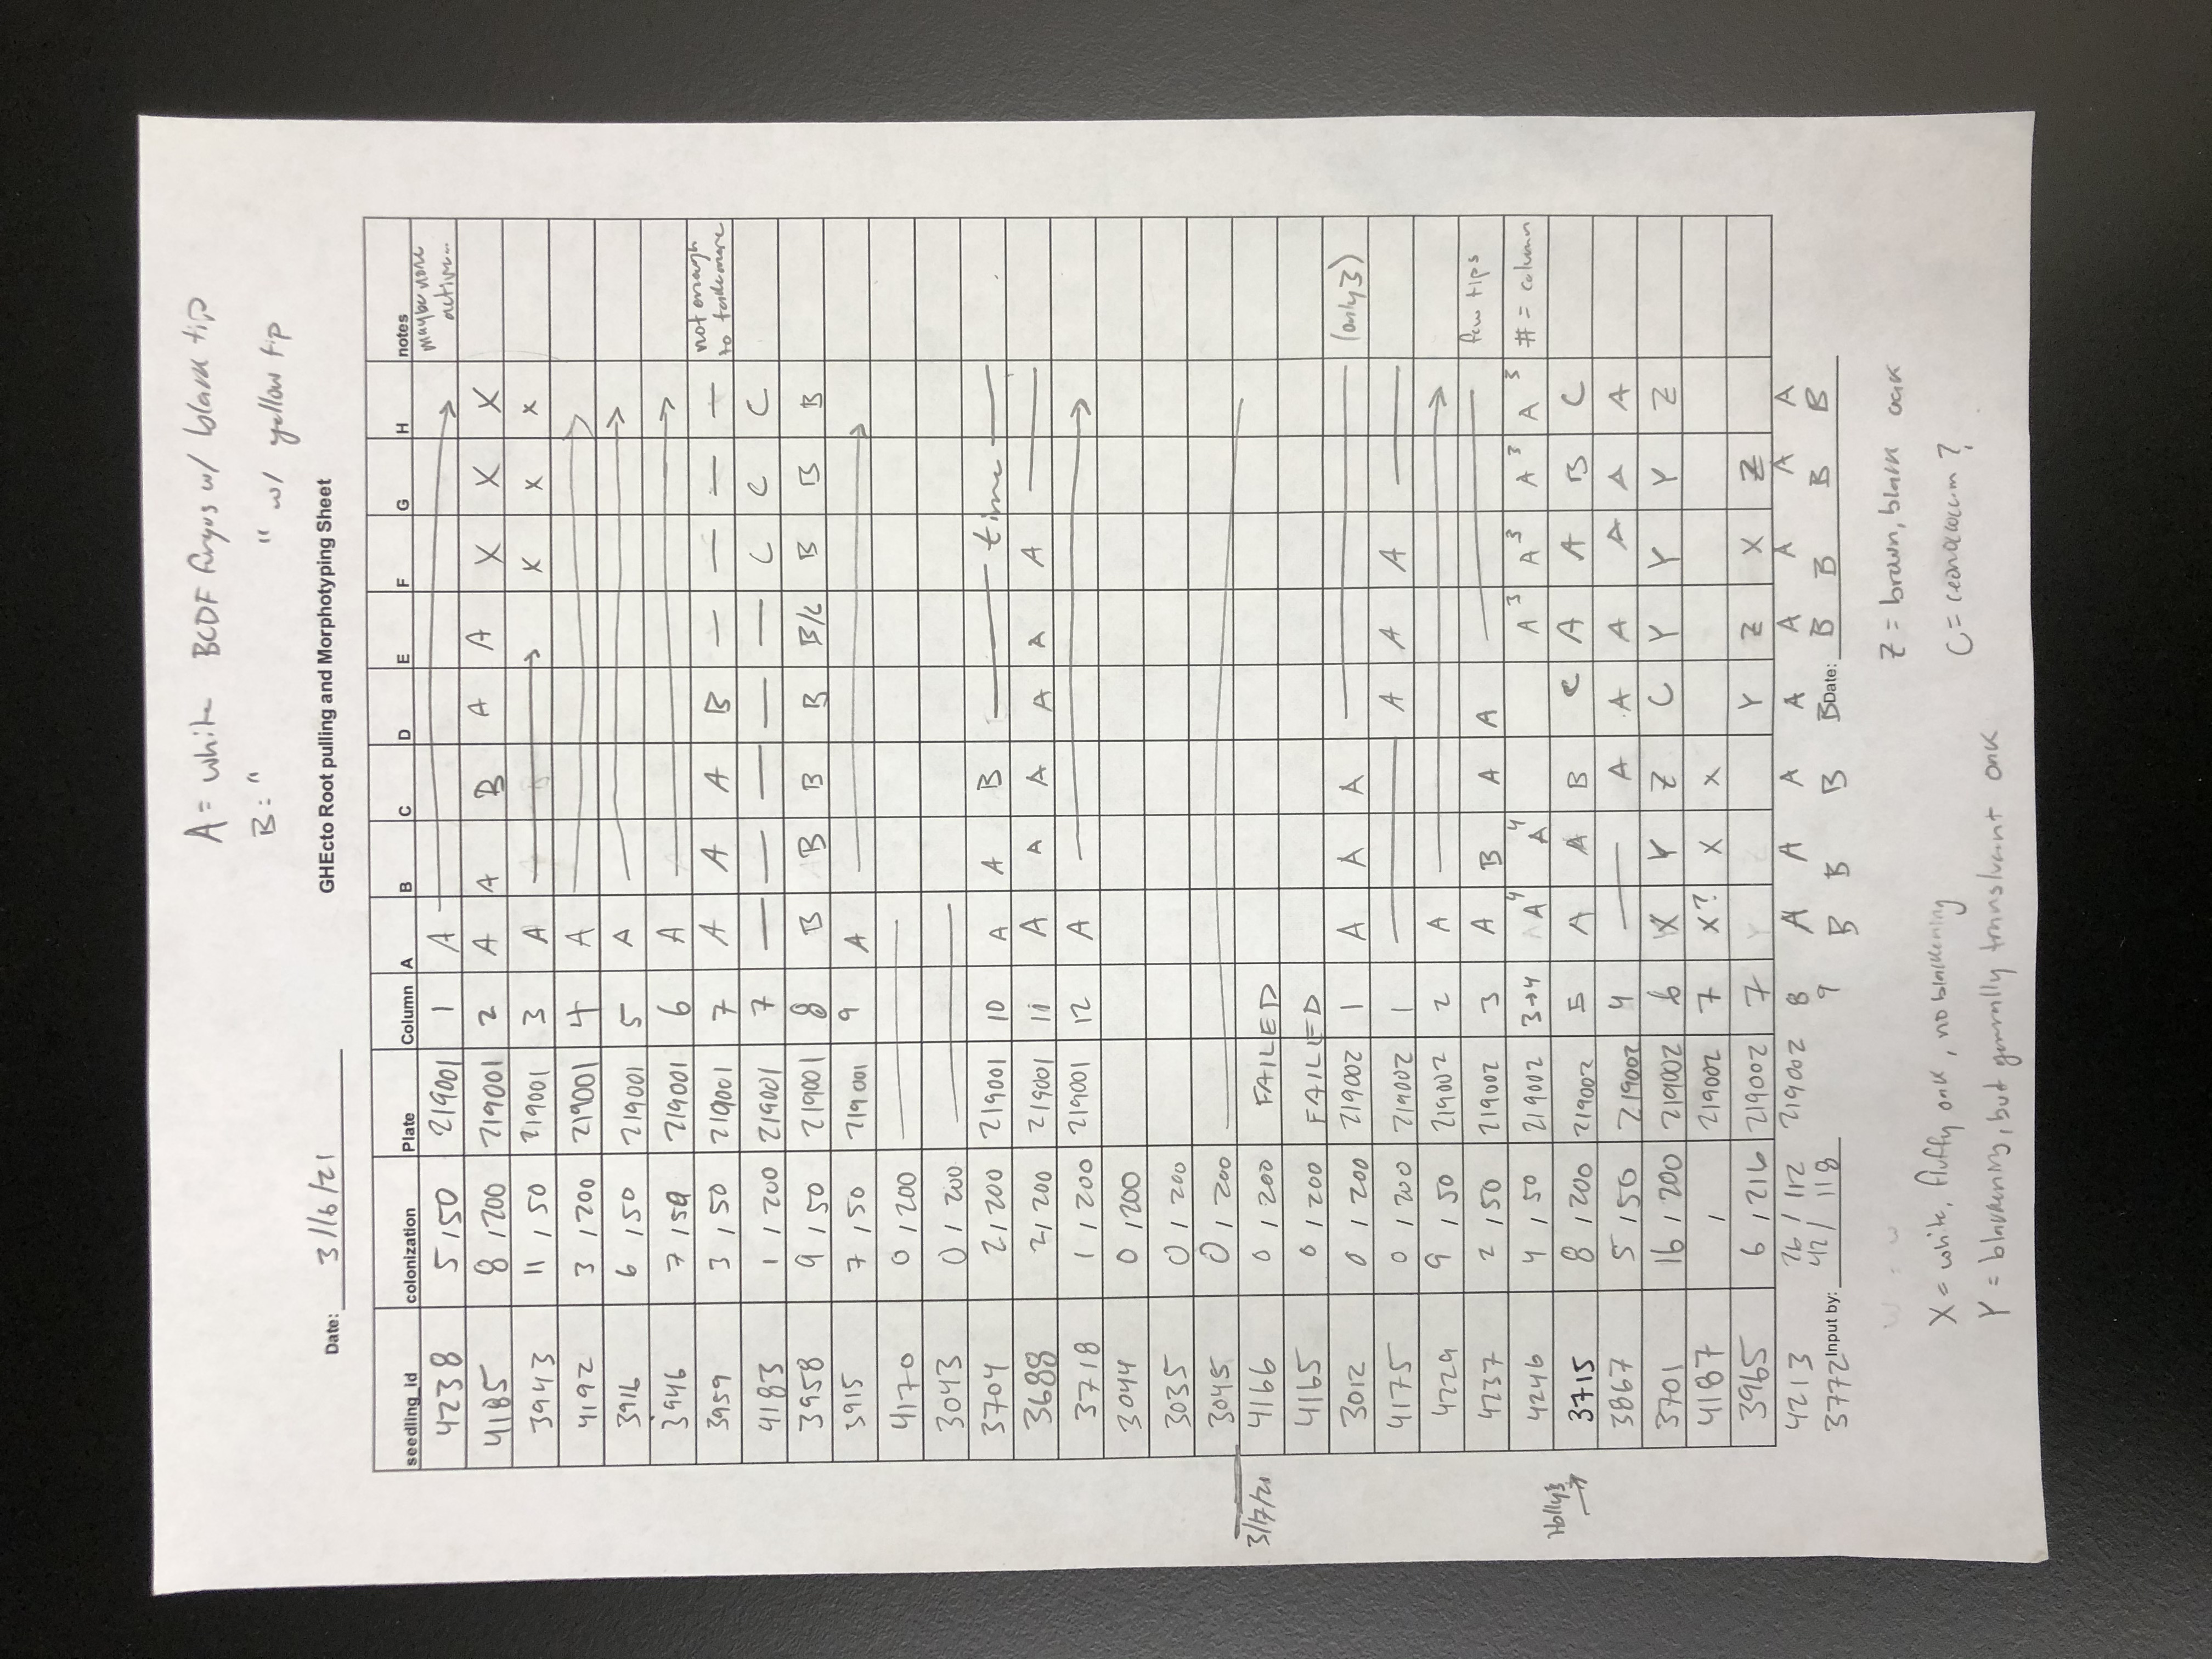 A = white BCDF fungus w/ black tip
B: " " w/ yellow tip
Date: 3/16/21 GHEcto Root pulling and Morphotyping Sheet
seedling_id colonization Plate Column A B C D E F G H notes
4238 5 / 50 219001 1 A maybe more active...
4185 8 / 200 219001 2 A A B A A X X X
3943 11 / 50 219001 3 A X X X
4192 3 / 200 219001 4 A
3916 6 / 50 219001 5 A
3946 7 / 50 219001 6 A
3959 3 / 50 219001 7 A A A B — — — — not enough to take more
4183 1 / 200 219001 7 — — — — — C C C
3958 9 / 50 219001 8 B B B B B/C B B B
3915 7 / 50 219001 9 A
4170 0 / 200
3043 0 / 200
3704 2 / 200 219001 10 A A B — time —
3688 2 / 200 219001 11 A A A A A A —
3718 1 / 200 219001 12 A
3044 0 / 200
3035 0 / 200
3045 0 / 200
3/17/21 4166 0 / 200 FAILED
4165 0 / 200 FAILED
3012 0 / 200 219002 1 A A A — (only 3)
4175 0 / 200 219002 1 — A A A —
4229 9 / 50 219002 2 A
4237 2 / 50 219002 3 A B A A — few tips
4246 4 / 50 219002 3→4 A⁴ A⁴ A³ A³ A³ A³ # = column
Holly's → 3715 8 / 200 219002 5 A A B C A A B C
3867 5 / 50 219002 4 — A A A A A A
3701 16 / 200 219002 6 X Y Z C Y Y Y Z
4187 / 219002 7 X? X X
3965 6 / 216 219002 7 Y Z X Z
4213 26 / 112 219002 8 A A A A A A A A
3772 Input by: 42 / 118 9 B B B B Date: B B B B
Z = brown, black oak
X = white, fluffy oak, no blackening
C = cenococcum?
Y = blackening, but generally translucent oak